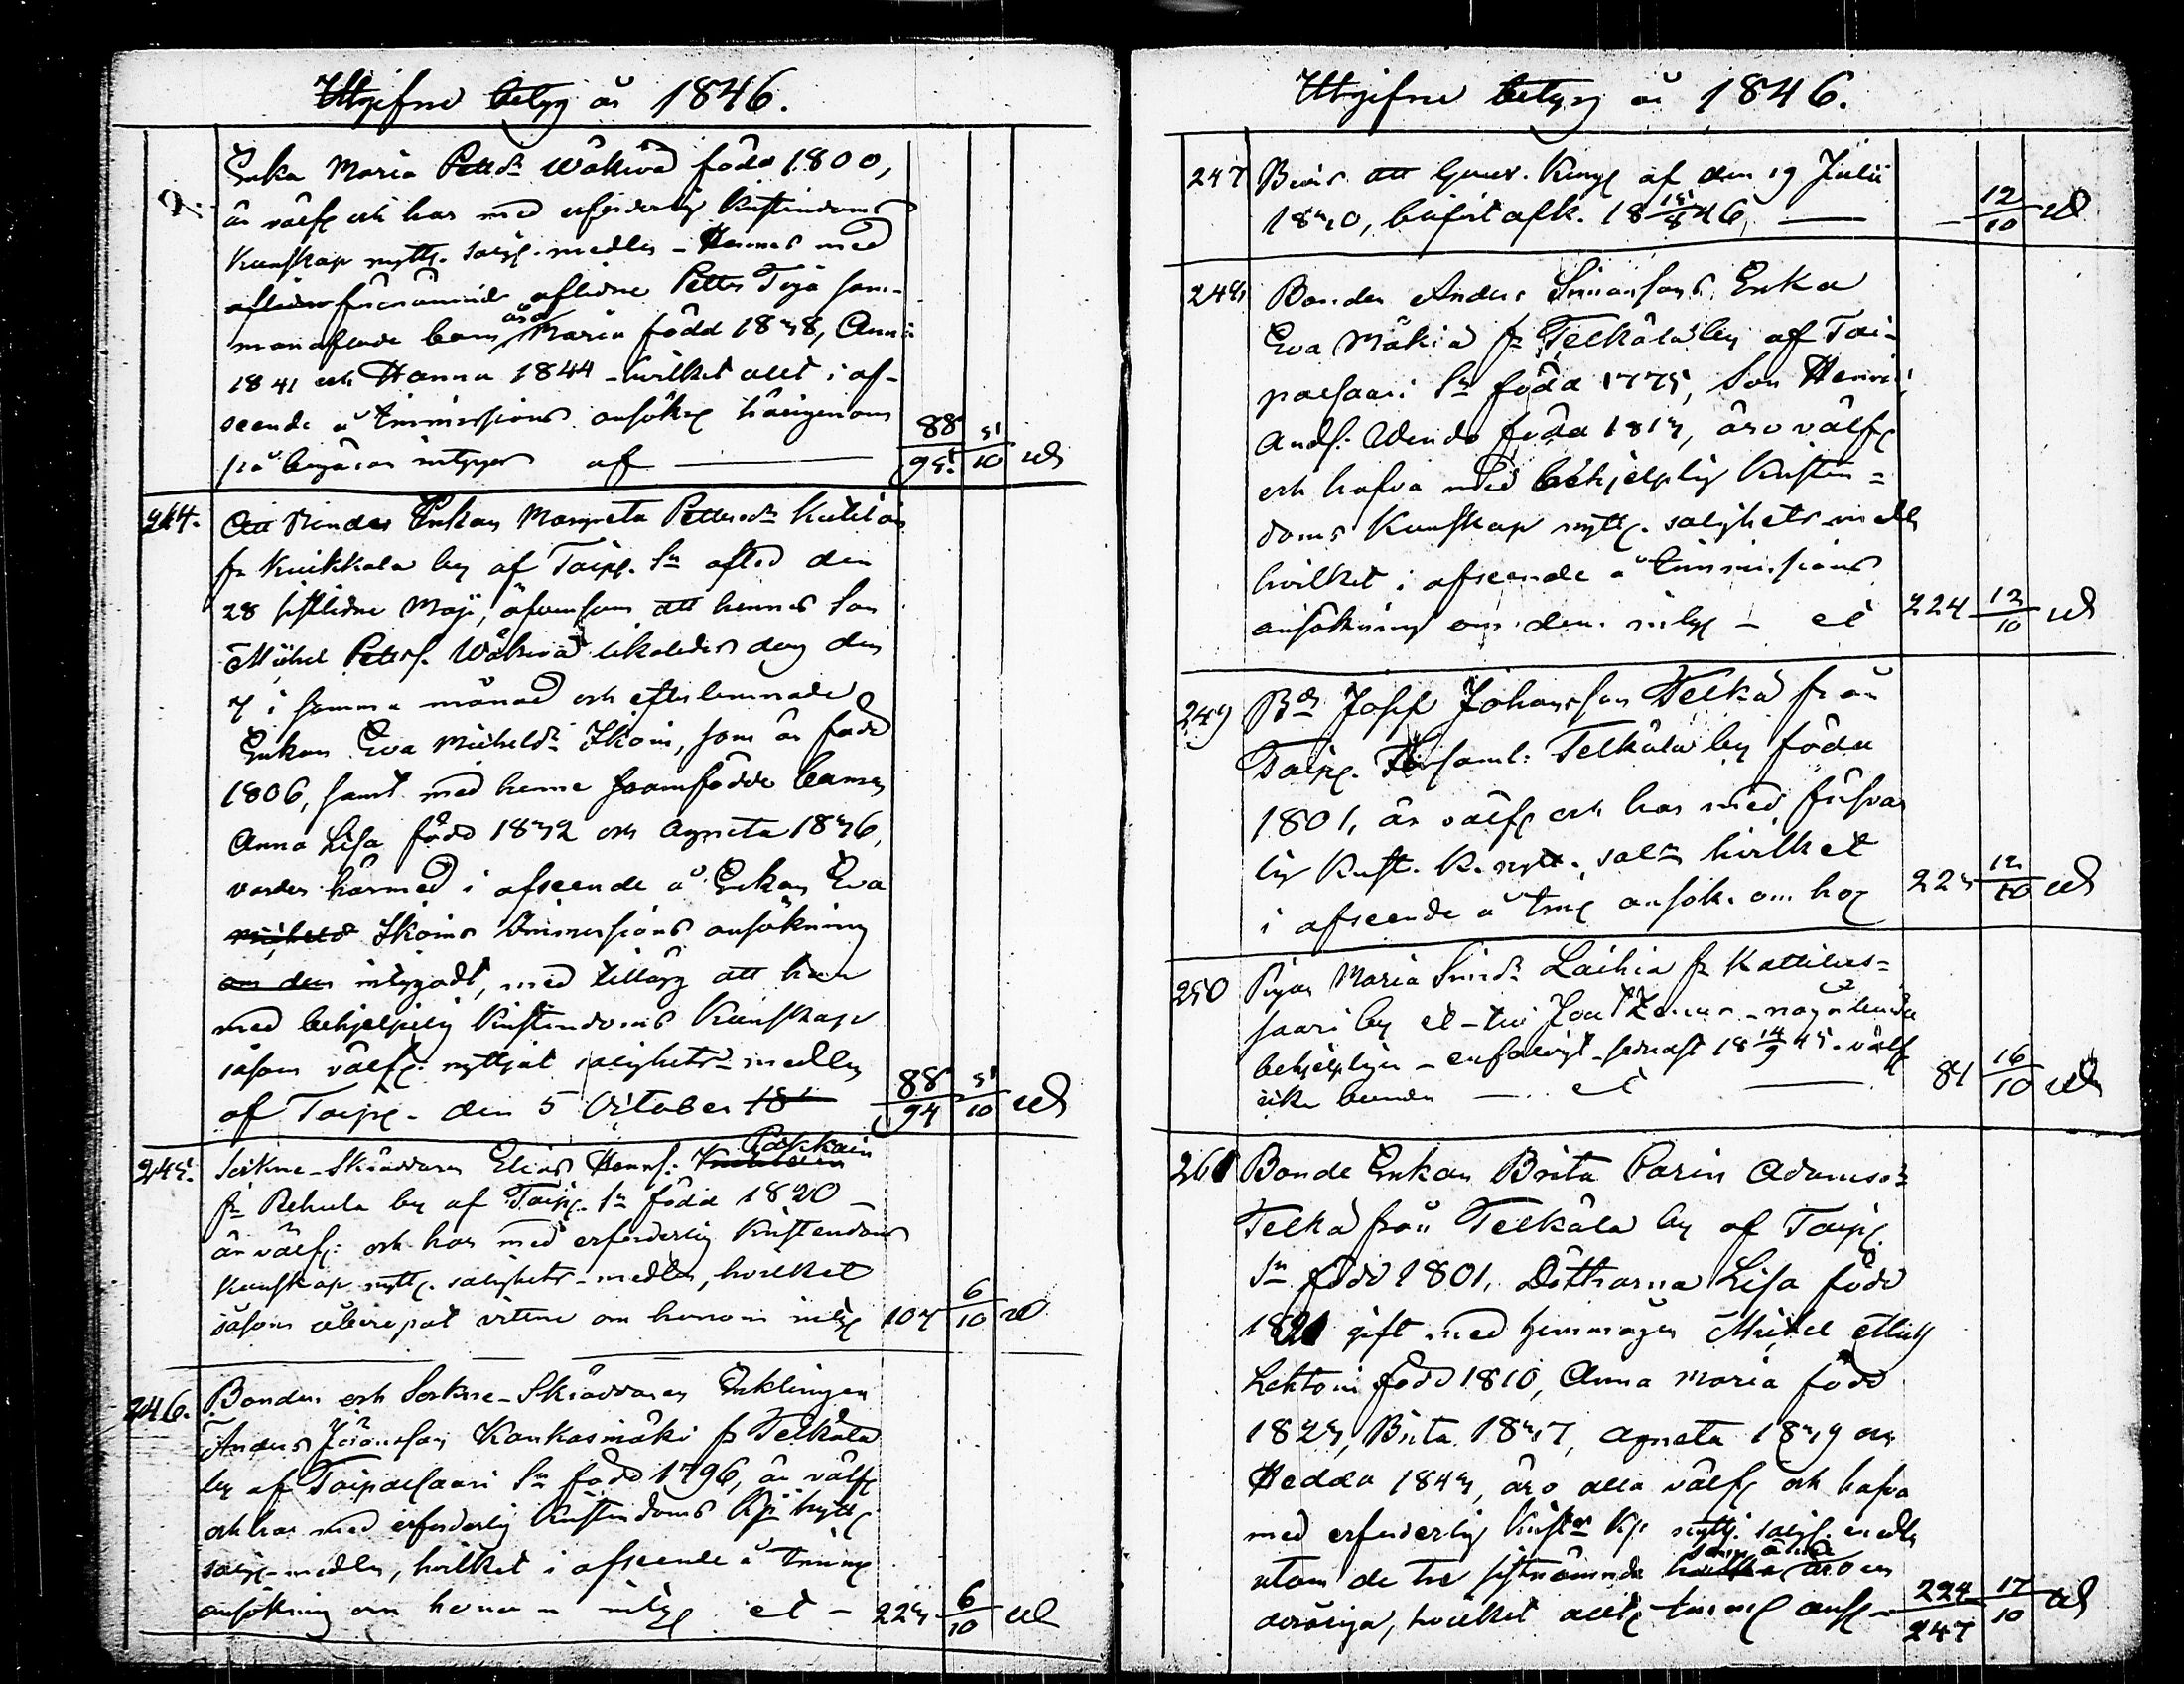 Utgifne betyg år 1846.
Enka Maria Pettdr Wäkevä född 1800,
är välfr och har med erforderlig Kristendoms
Kunskap nyttj. salig. medlen - Hennes med
aflidne förenämnde aflidne Petter Töjä sam-
manaflade barn äro Maria född 1838, Anna
1841 och Hanna 1844 - hvilket allt i af-
seende å Immissions ansökng härigenom
på begäran intygar af — 88/95. 5/10 ul
244. Att Bonde Enkan Margreta Pettersdr Kutilain
fr Kuikkala by af Taip. Sn afled den
28 sistlidne Maji, äfvensom att hennes Son
Michel Petters. Wäkevä likaledes dog den
7 i samma månad och efterlemnade
Enkan Eva Michelsdr Ikoin, som är född
1806, samt med henne framfödde barnen
Anna Lisa född 1832 och Agneta 1836,
varder härmed i afseende å Enkan Eva
Michelsdr Ikoins Immissions ansökning
om den intygadt, med tillägg att hon
med behjelpelig Kristendoms Kunskap
såsom välfr. nyttjat salighets-medlen
af Taip. den 5 October 18 88/94 5/10 ul
245. Sockne-Skräddaren Elias Henrs. Päkkäin
fr Rehula by af Taip. Sn född 1820 -
är välfr: och har med erforderlig Kristendoms
Kunskap nyttj. salighets-medlen, hvilket
såsom åberopat vittne om honom intyg 107 6/10 ul
246. Bonden och Sockne-Skräddaren Enklingen
Anders Göransson Kankasmäki fr Telkälä
by af Taipalsaari Sn född 1796, är välfr
och har med erforderlig Kristendoms Kp nyttj
salig-medlen, hvilket i afseende å Immis
ansökning om honom intyg et - 223 6/10 ul
Utgifne betyg år 1846.
247 Bevis att Guver. Kung af den 19 Julii
1840, blifvit afk. 18 15/8 46, — 12/10 ul
248 Bonden Anders Simonsons Enka
Eva Mäkiä fr Telkälä by af Tai-
palsaari Sn född 1775, Son Henric
Ands: född 1813, äro välfr
och hafva med behjelplig Kristen=
doms Kunskap nyttj. salighets medln
hvilket i afseende å Immissions
ansökning om dem intyg - et 224 12/10 ul
249 Bdn Josef Johansson Telkä från
Taip. Församl: Telkälä by född
1801, är välfr och har med försvar
lig Krist. K. nytt. salm hvilket
i afseende å Img ansök. om ho 223 12/10 ul
250 Pigan Maria Simdr Laihia fr Kattilais=
saari by någorlunda
behjelpligen - enfaldigt sednast 18 14/9 45. välf
icke kunde — et — 84 16/10 ul
261 Bonde Enkan Brita Carin Adamsdr
Telkä från Telkälä by af Taip.
Sn född 1801, Döttrarna Lisa född
1821 gift med Hemmågen Michel Mich
Lehtoin född 1810, Anna Maria född
1823, Brita 1837, Agneta 1839 och
Hedda 1843, äro alla välfr och hafva
med erforderlig Kristd Kp nyttj. salig. medln
utom de tre sistnämnde som ännu äro
oäriga, hvilket allt Immis ans — 224/247 17/10 ul